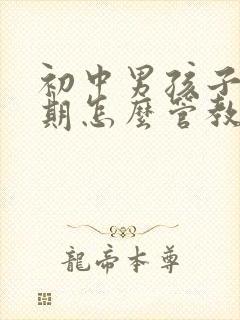 初中男孩子
期怎麼管教
龍帝本尊